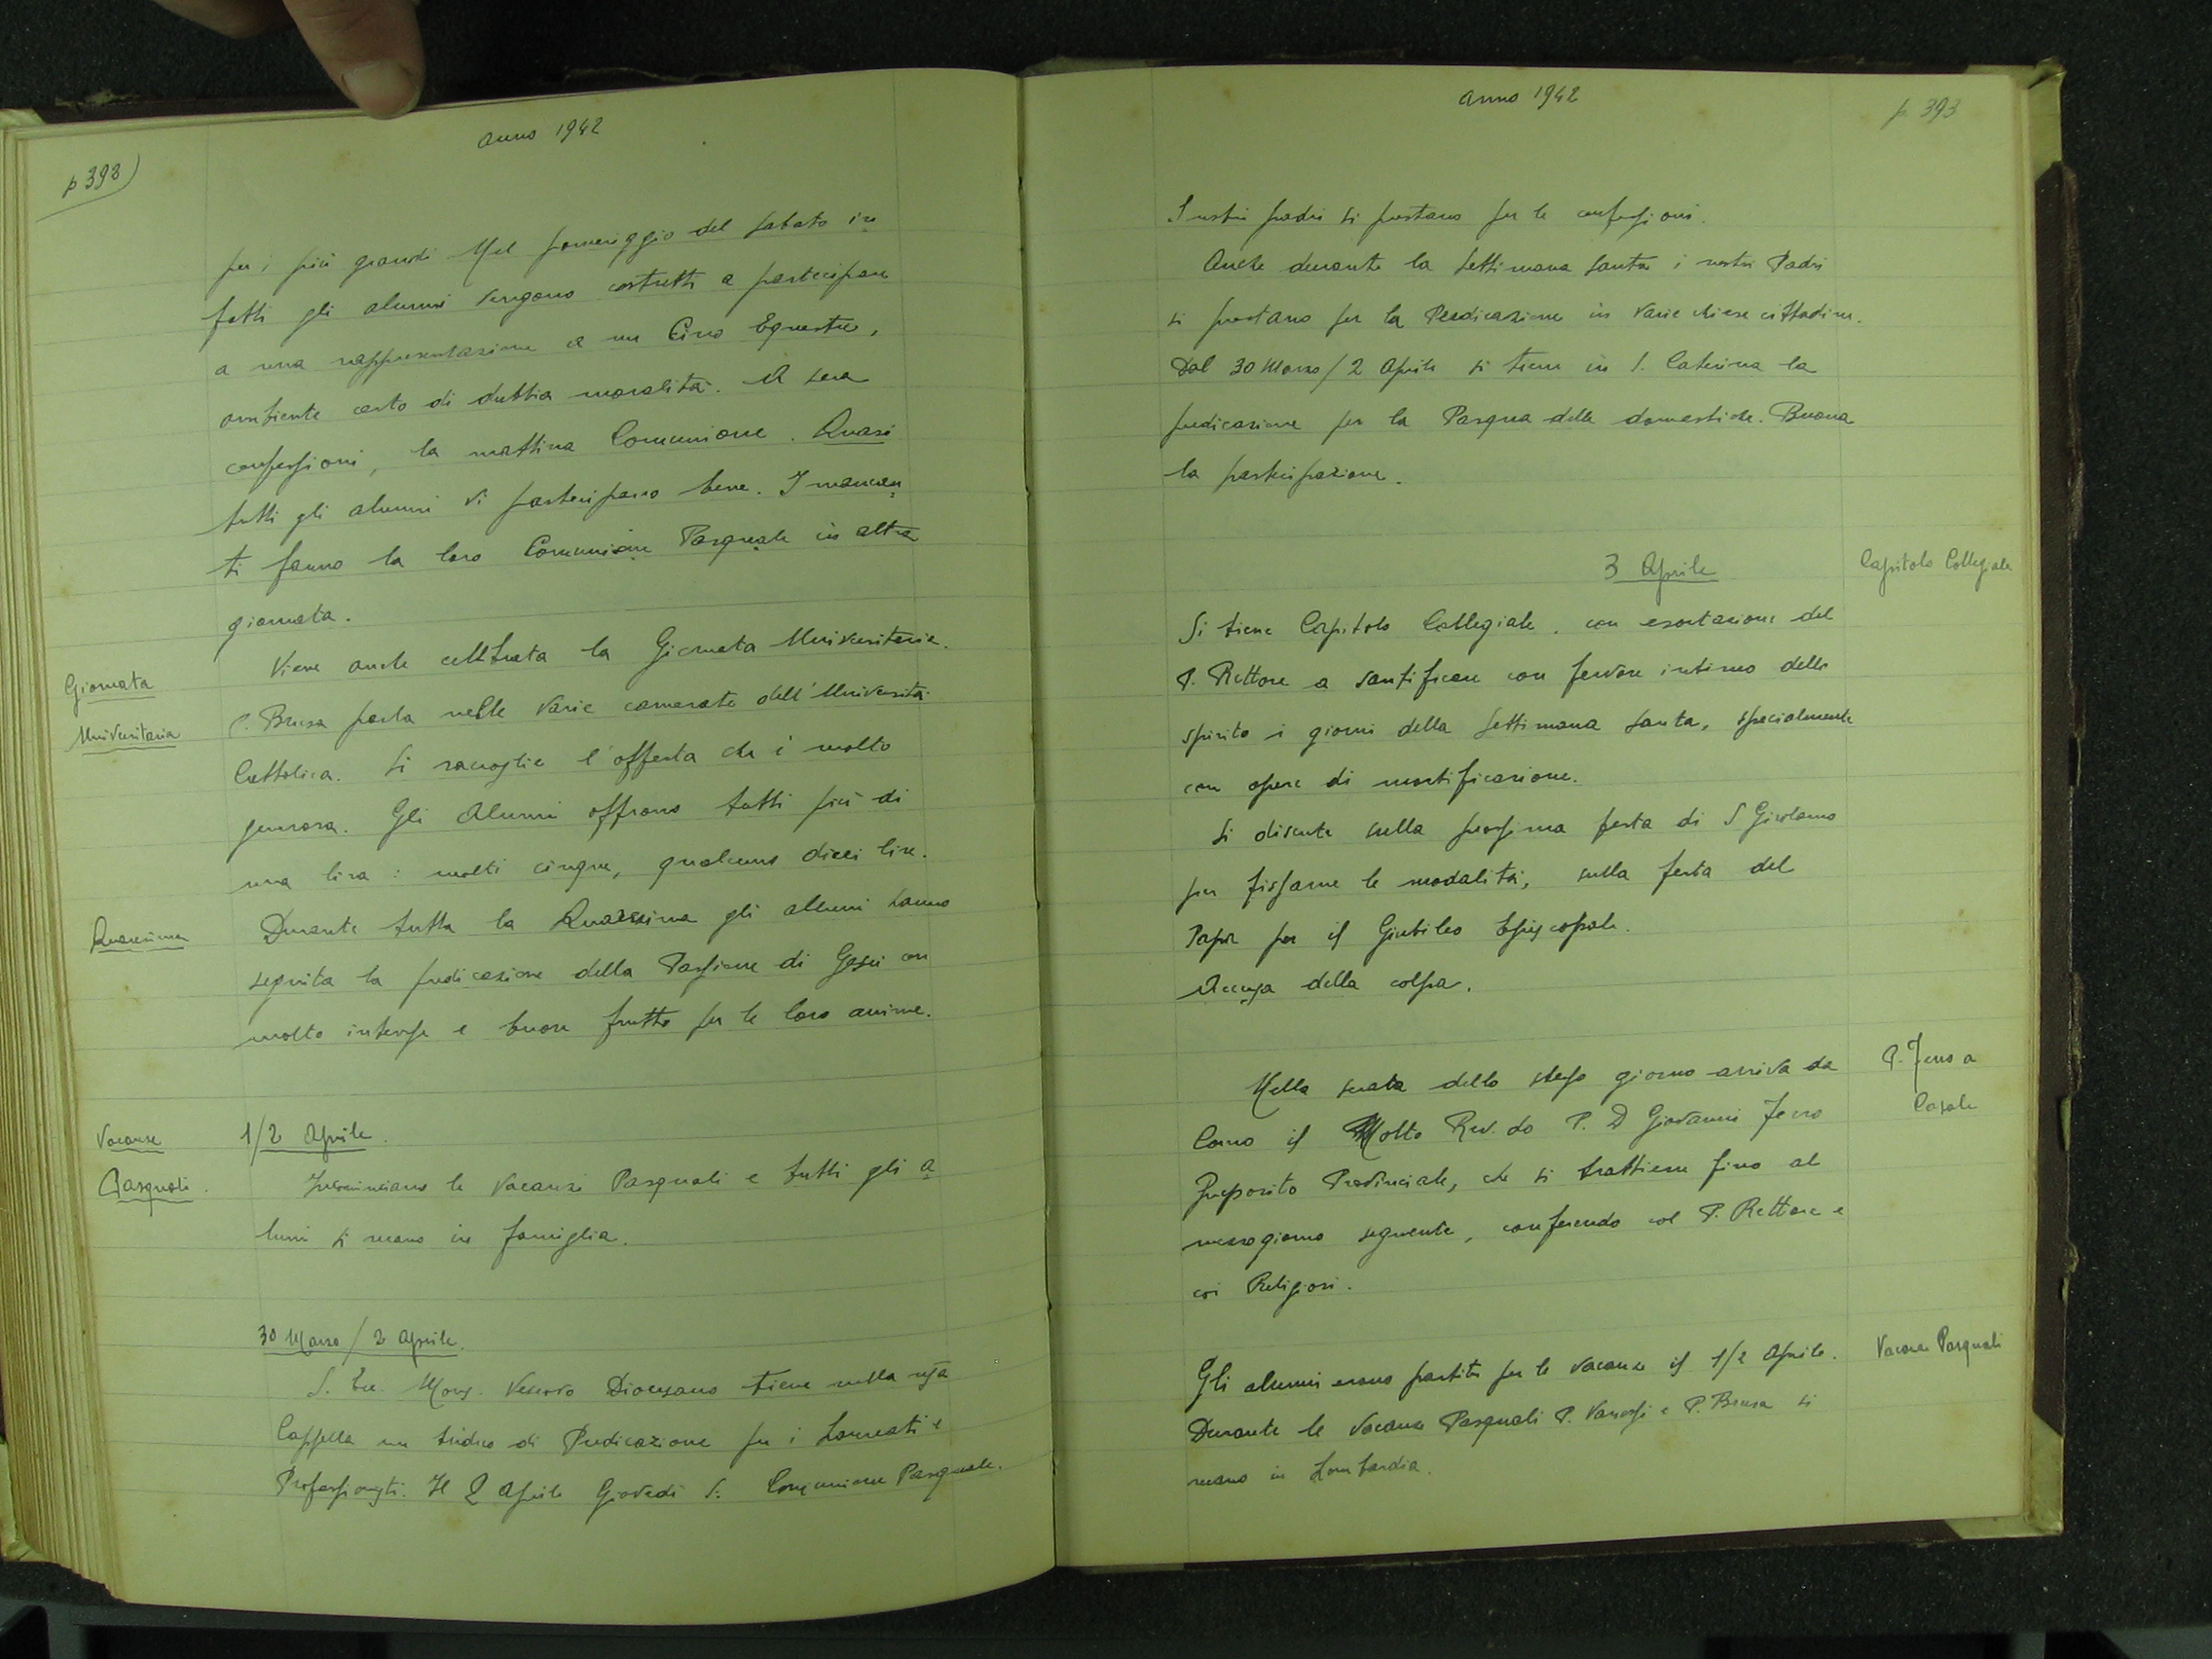 Anno 1942
p 392)
per i più grandi Nel pomeriggio del sabato in
fatti gli alunni vengono costretti a partecipare
a una rappresentazione a un Circo Equestre,
ambiente certo di dubbia moralità. A sera
confessioni, la mattina Comunione. Quasi
tutti gli alunni vi partecipano bene. I mancan
ti fanno la loro Comunione Pasquale in altra
giornata.
Giornata
Universitaria
Viene anche celebrata la Giornata Universitaria.
P. Brusa parla nelle varie camerate dell'Università
Cattolica. Si raccoglie l'offerta che è molto
generosa. Gli Alunni offrono tutti più di
una lira: molti cinque, qualcuno dieci lire.
Quaresima
Durante tutta la Quaresima gli allievi hanno
seguita la predicazione della Passione di Gesù con
molto interesse e buon frutto per le loro anime.
Vacanze
Pasquali.
1/2 Aprile.
Incominciano le Vacanze Pasquali e tutti gli a
lunni si recano in famiglia.
30 Marzo / 2 Aprile.
S. Ecc. Mons. Vescovo Diocesano tiene nella nostra
Cappella un triduo di Predicazione per i Laureati e
Professionisti. Il 2 Aprile Giovedì S. Comunione Pasquale.
Anno 1942
p. 393
I nostri padri si prestano per le confessioni.
Anche durante la settimana santa i nostri Padri
si prestano per la Predicazione in varie chiese cittadine.
Dal 30 Marzo / 2 Aprile si tiene in S. Caterina la
predicazione per la Pasqua delle domestiche. Buona
la partecipazione.
3 Aprile
Capitolo Collegiale
Si tiene Capitolo Collegiale, con esortazione del
P. Rettore a santificare con fervore intimo dello
spirito i giorni della settimana santa, specialmente
con opere di mortificazione.
Si discute sulla prossima festa di S Girolamo
per fissarne le modalità, sulla festa del
Papa per il Giubileo Episcopale.
Accusa della colpa.
P. Ferro a
Casale
Nella serata dello stesso giorno arriva da
Como il Molto Rev.do P. D Giovanni Ferro
Preposito Provinciale, che si trattiene fino al
mezzogiorno seguente, conferendo col P. Rettore e
coi Religiosi.
Vacanze Pasquali
Gli alunni erano partiti per le vacanze il 1/2 Aprile.
Durante le Vacanze Pasquali P. Vanossi e P. Brusa si
recano in Lombardia.